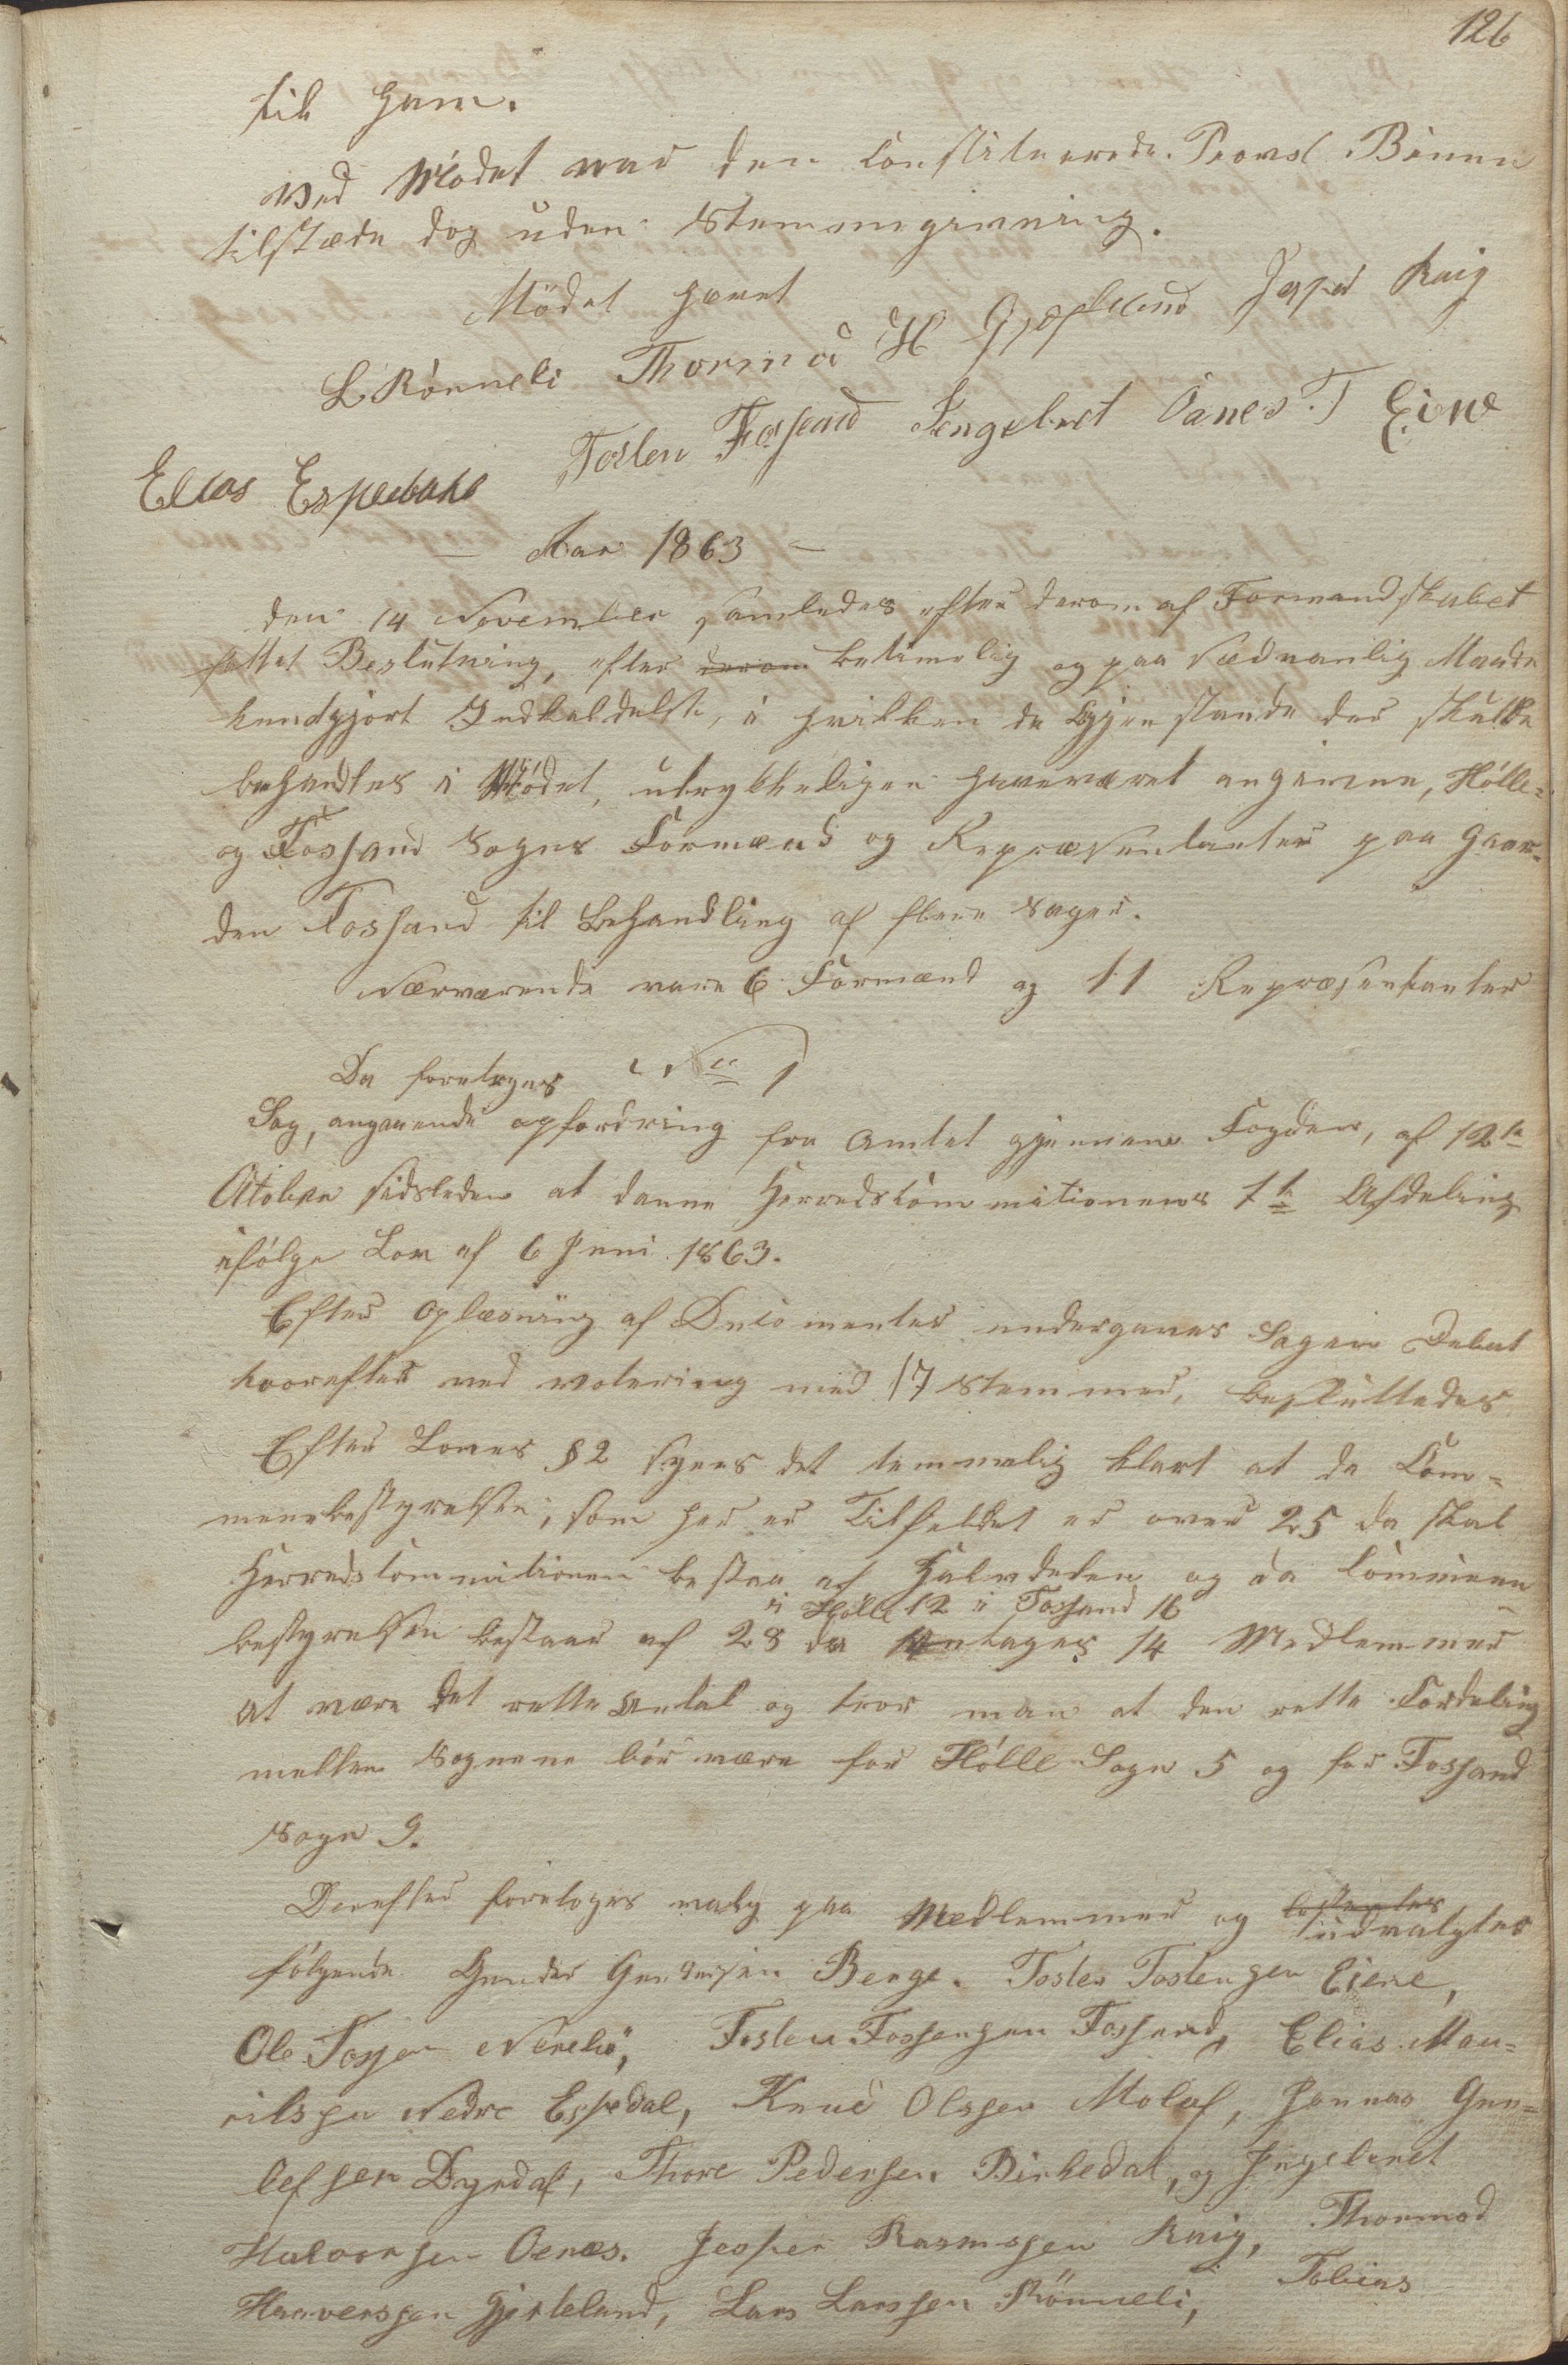 126
til ham.
Ved Mödet var den Constituerede Provst Bömn
tilstæde dog uden Stemmegivning.
Mödet hævet
L Rönneli Thormod H Gjesteland Jesper Kaig
Tosten Fossand Jengebret Oanes T Eine
Elias Espedahl
- Aar 1863 -
den 14 November samledes efter derom af Formandskabet
fattet Beslutning, efter derom betimelig og paa sædvanlig Maade
kundgjort Indkaldelse, i hvilken de Gjenstande der skulle
behandles i Mödet, udtrykkeligen have været angivne, Hölle-
og Fossand Sogns Formænd og Repræsentanter paa Gaar-
den Fossand til Behandling af flere Sager.
Nærværende vare 6 Formænd og 11 Repræsentanter
Da foretoges No 1
Sag, angaaende opfordring fra Amtet gjennem Fogden, af 12te
Octobre sidsleden at danne Herredscommitionens 1te Afdeling
ifölge Lov af 6 Juni 1863.
Efter Oplæsning af Documenter undergaves Sagen Debat
hvorefter ved votering med 17 Stemmer, besluttedes
Efter Lovens § 2 synes det temmelig klart at da Com-
munebestyrelsen, som her er Tilfeldet er over 25 da skal
Herredscommitionen bestaa af Halvdelen og da Commune
i Hölle 12 i Fossand 16
bestyrelsen bestaar af 28 da antages 14 Medlemmer
at være det rette Antal og tror man at den rette Fordeling
mellem Sognene bör være for Hölle Sogn 5 og for Fossand
Sogn 9.
Derefter foretoges valg paa Medlemmer og udvalgtes
fölgende Gunder Gundersen Berge. Tosten Tostensen Eiene,
Ole Tossen Nerebö, Tosten Tossensen Fossand, Elias Mau-
ritssen Nedre Espedal, Knud Olssen Molaf, Jonnas Gun-
lefsen Dyrdal, Thore Pedersen Birkedal, og Ingebret
Halvorsen Oenæs. Jesper Rasmssen Kaig, Thormod
Haaverssen Gjesteland, Lars Larssen Rönneli, Tobias